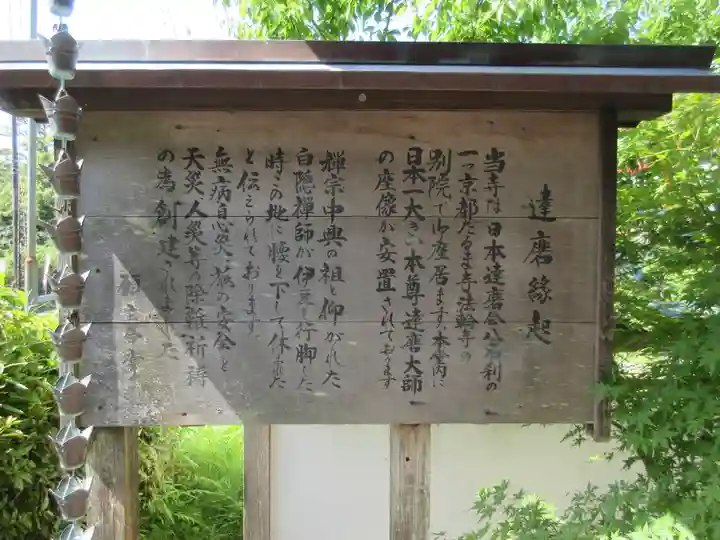 達磨縁起
当寺は日本達磨会八名刹の
一つ京都だるま寺法輪寺の
別院で御座居ます 本堂内に
日本一大きい本尊達磨大師
の座像が安置されております
禅宗中興の祖と仰がれた
白隠禅師が伊豆行脚した
時この地に腰を下して休まれた
と伝えられております
無病息災 旅の安全と
天災、人災等の除難祈祷
の為創建されました